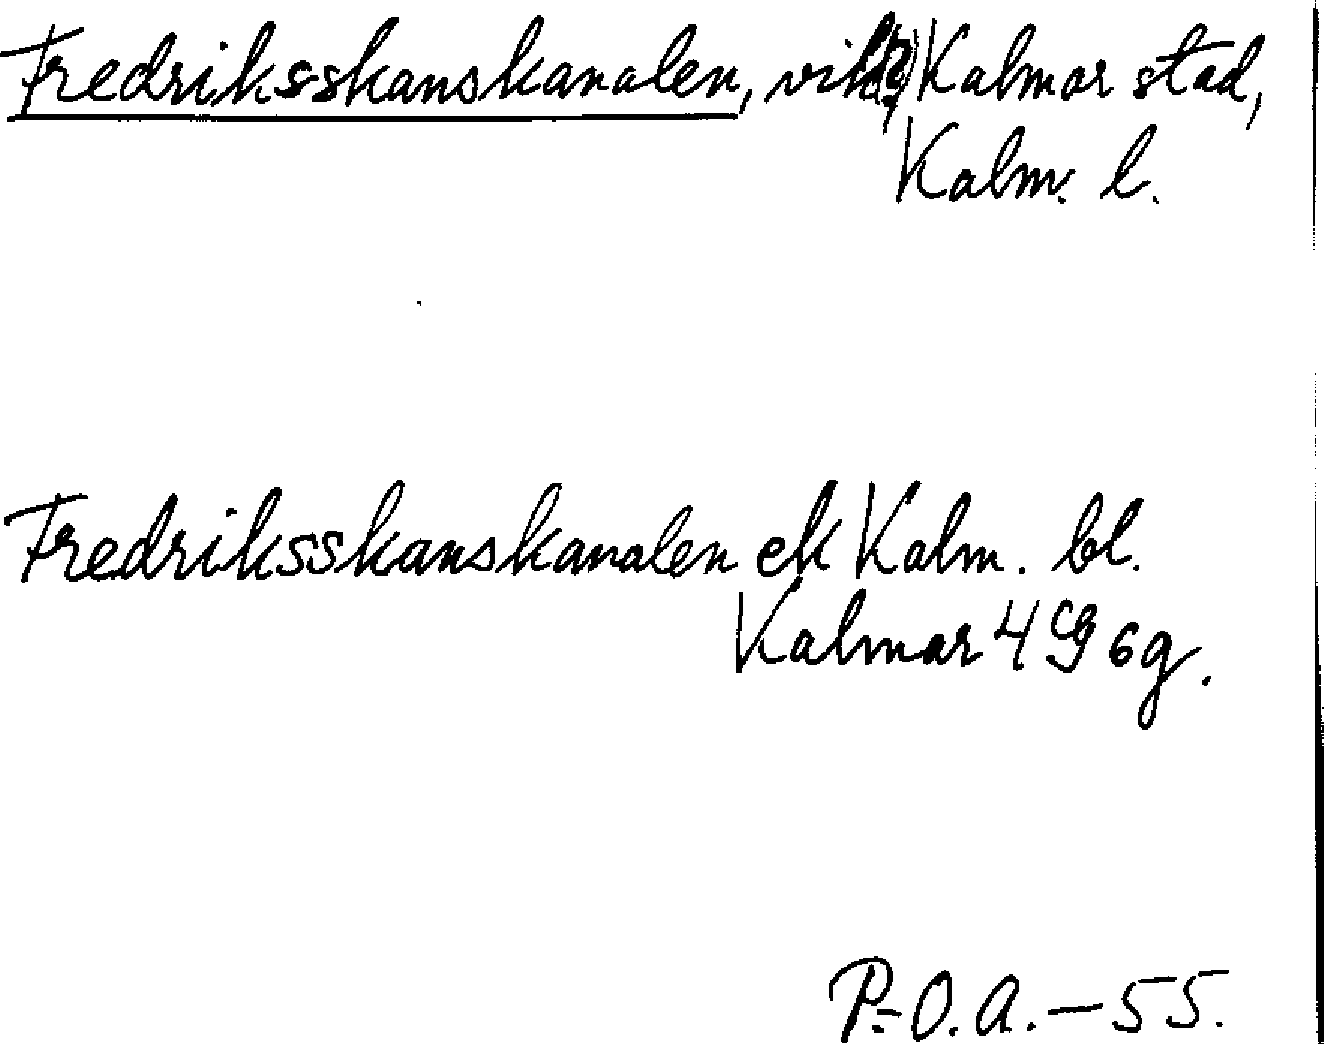 Fredriksskanskanalen, vik, Kalmar stad,
Kalm. l.
Fredriksskanskanalen ek Kalm. bl.
Kalmar 4 G 6g.
P.-O. A. – 55.